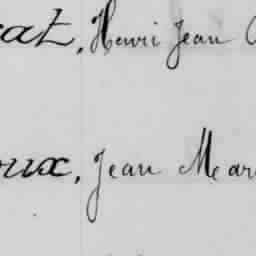 at, Henri Jean
oux, Jean Mar